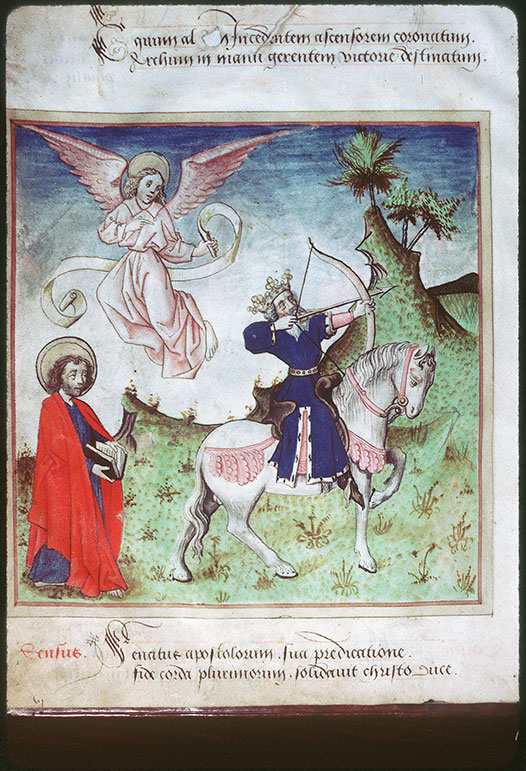 Equum al In cedentem ascensorem coronatum.
Archum in manu gerentem victorie destinatum.
Sensus. Cencitus apostolorum. sua predicatione.
fide corda plurimorum. solidavit christo duce.